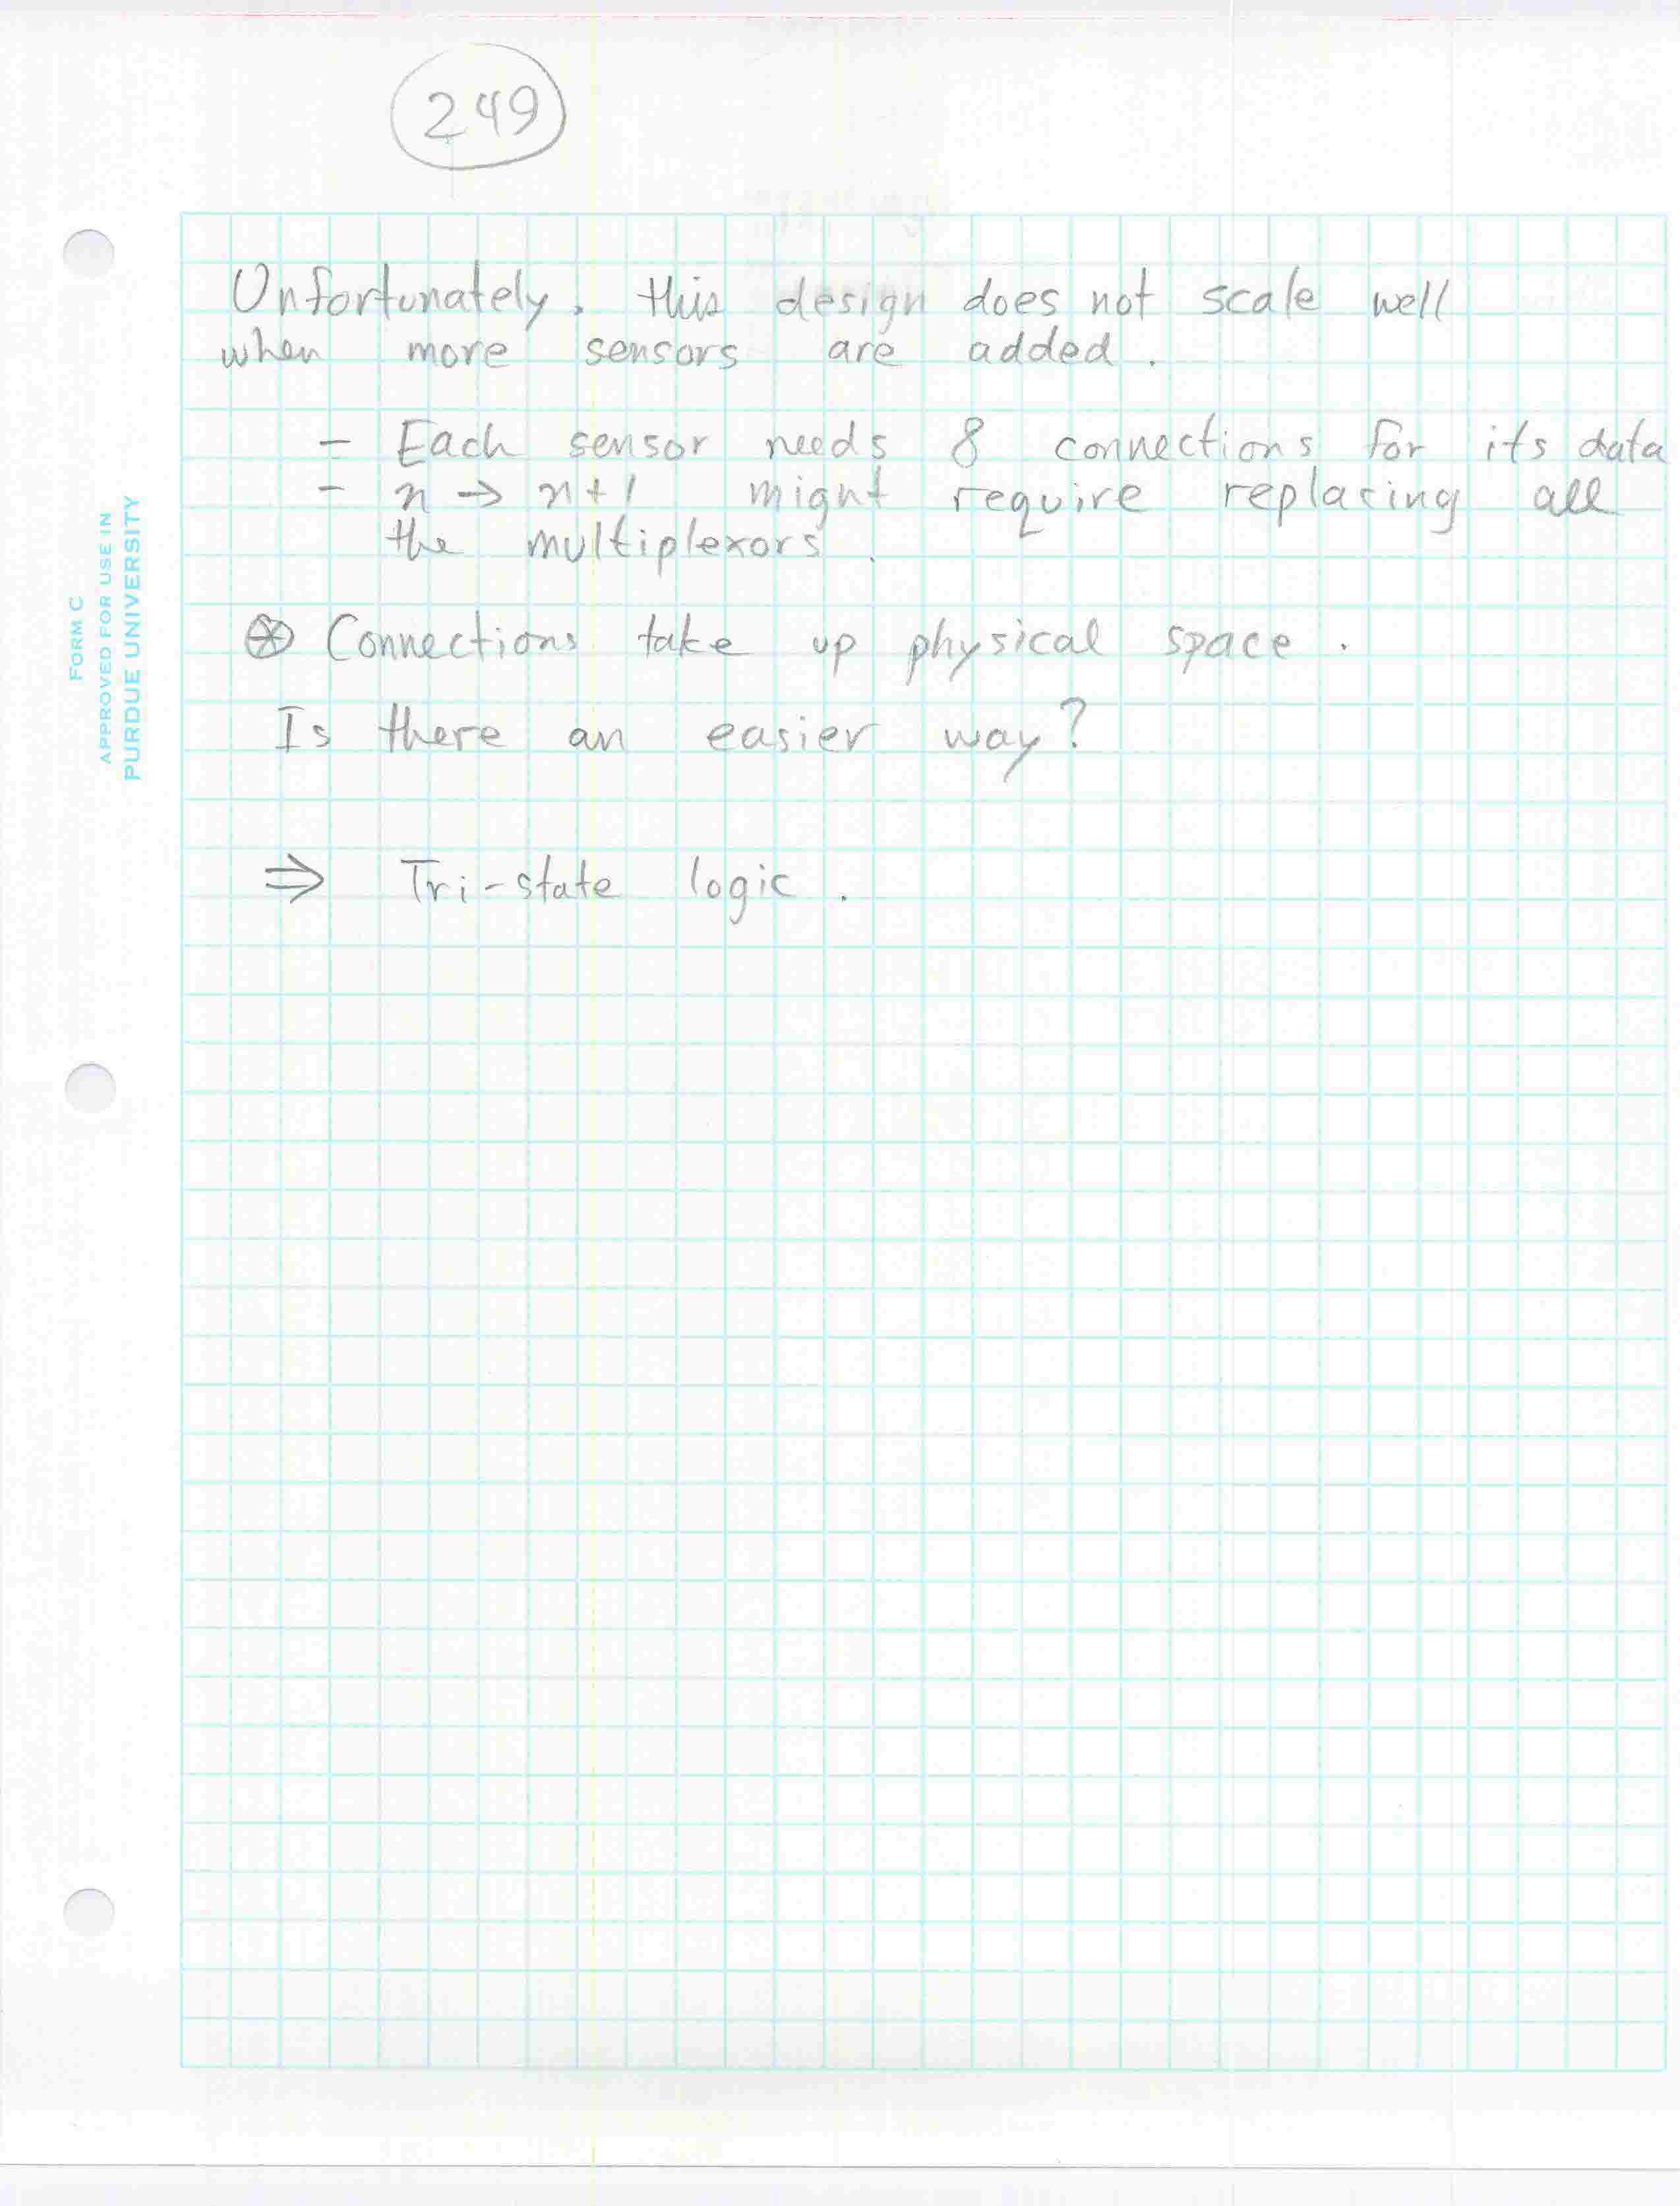 249
Unfortunately, this design does not scale well
when more sensors are added.
- Each sensor needs 8 connections for its data
- n → n+1 might require replacing all
the multiplexors.
⊛ Connections take up physical space.
Is there an easier way?
⇒ Tri-state logic.
FORM C
APPROVED FOR USE IN
PURDUE UNIVERSITY